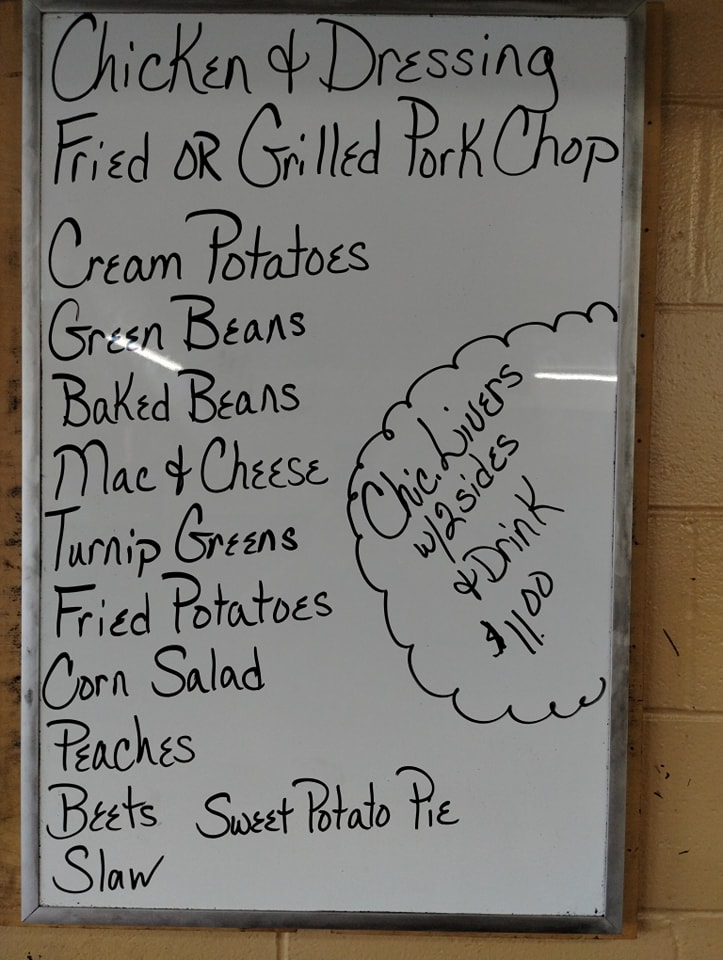 Chicken & Dressing
Fried OR Grilled Pork Chop
Cream Potatoes
Green Beans
Baked Beans
Mac & Cheese
Turnip Greens
Fried Potatoes
Corn Salad
Peaches
Beets Sweet Potato Pie
Slaw
Chic. Livers
w/2 sides
& Drink
$11.00